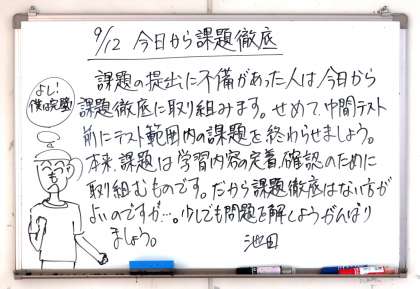 9/12 今日から課題徹底
課題の提出に不備があった人は今日から
課題徹底に取り組みます。せめて、中間テスト
前にテスト範囲内の課題を終わらせましょう。
本来、課題は学習内容の定着、確認のために
取り組むものです。だから課題徹底はない方が
よいのですが…。少しでも問題を解しようがんばり
ましょう。
池田
よし!
僕は完璧!